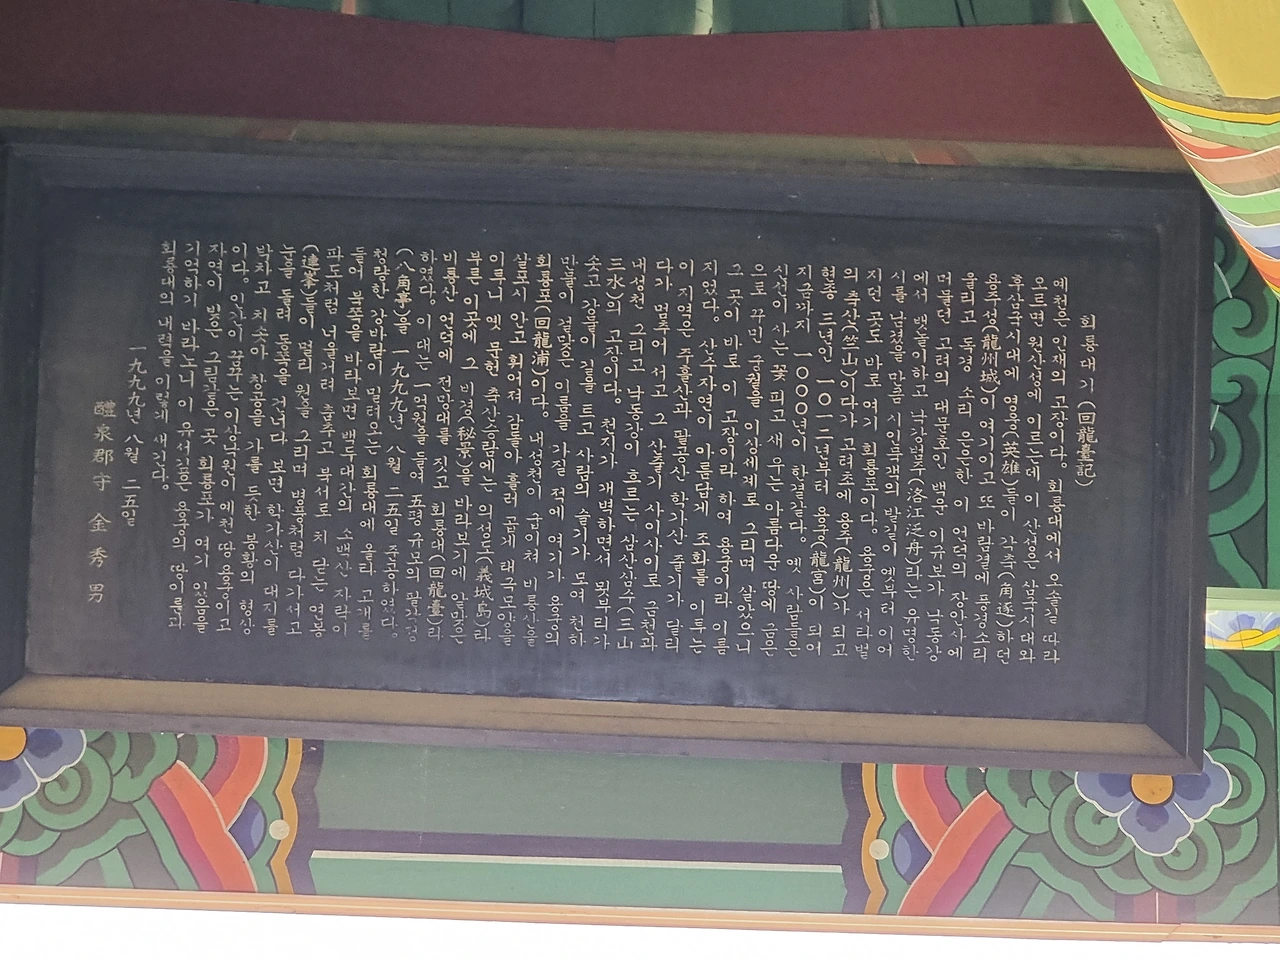 회룡대기(回龍臺記)
예천은 인재의 고장이다. 회룡대에서 오솔길 따라
오르면 원산성에 이르는데 이 산성은 삼국시대와
후삼국시대에 영웅(英雄)들이 각축(角逐)하던
용주성(龍州城)이 여기이고 또 바람결에 풍경소리
울리고 독경 소리 은은한 이 언덕의 장안사에
머물던 고려의 대문호인 백운 이규보가 낙동강
에서 뱃놀이하고 낙강범주(洛江泛舟)라는 유명한
시를 남겼을 만큼 시인묵객의 발길이 옛부터 이어
지던 곳도 바로 여기 회룡포이다. 용궁은 서라벌
의 축산(竺山)이다가 고려초에 용주(龍州)가 되고
현종 三년인 一○一二년부터 용궁(龍宮)이 되어
지금까지 一○○○년이 한결같다. 옛 사람들은
신선이 사는 꽃 피고 새 우는 아름다운 땅에 금은
으로 꾸민 궁궐을 이상세계로 그리며 살았으니
그 곳이 바로 이 고장이라 하여 용궁이라 이름
지었다. 산수자연이 아름답게 조화를 이루는
이 지역은 주흘산과 팔공산 학가산 줄기가 달리
다가 멈추어 서고 그 산줄기 사이사이로 금천과
내성천 그리고 낙동강이 흐르는 삼산삼수(三山
三水)의 고장이다. 천지가 개벽하면서 묏부리가
솟고 강물이 길을 트고 사람의 슬기가 모여 천하
만물이 걸맞은 이름을 가질 적에 여기가 용궁의
회룡포(回龍浦)이다. 내성천이 굽이쳐 비룡산을
살포시 안고 휘어져 감돌아 흘러 곱게 태극문양을
이루니 옛 문헌 축산승람에는 의성도(義城島)라
부른 이곳에 그 비경(秘景)을 바라보기에 알맞은
비룡산 언덕에 전망대를 짓고 회룡대(回龍臺)라
하였다. 이 대는 一억원을 들여 五평 규모의 팔각정
(八角亭)을 一九九九년 八월 二五일 준공하였다.
청량한 강바람이 밀려오는 회룡대에 올라 고개를
들어 북쪽을 바라보면 백두대간의 소백산 자락이
파도처럼 너울거려 춤추고 북서로 치 닫는 연봉
(連峯)들이 멀리 원을 그리며 병풍처럼 다가서고
눈을 돌려 동쪽을 건너다 보면 학가산이 대지를
박차고 치솟아 창공을 가를 듯한 봉황의 형상
이다. 인간이 꿈꾸는 이상낙원이 예천 땅 용궁이고
자연이 빚은 그림같은 곳 회룡포가 여기 있음을
기억하기 바라노니 이 유서깊은 용궁의 땅이름과
회룡대의 내력을 이렇게 새긴다.
一九九九년 八월 二五일
醴泉郡守 金秀男